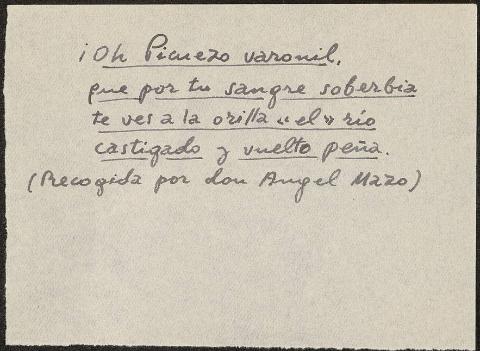 ¡Oh Picuezo varonil,
que por tu sangre soberbia
te ves a la orilla «el» río
castigado y vuelto peña.
(Recogida por don Angel Mazo)